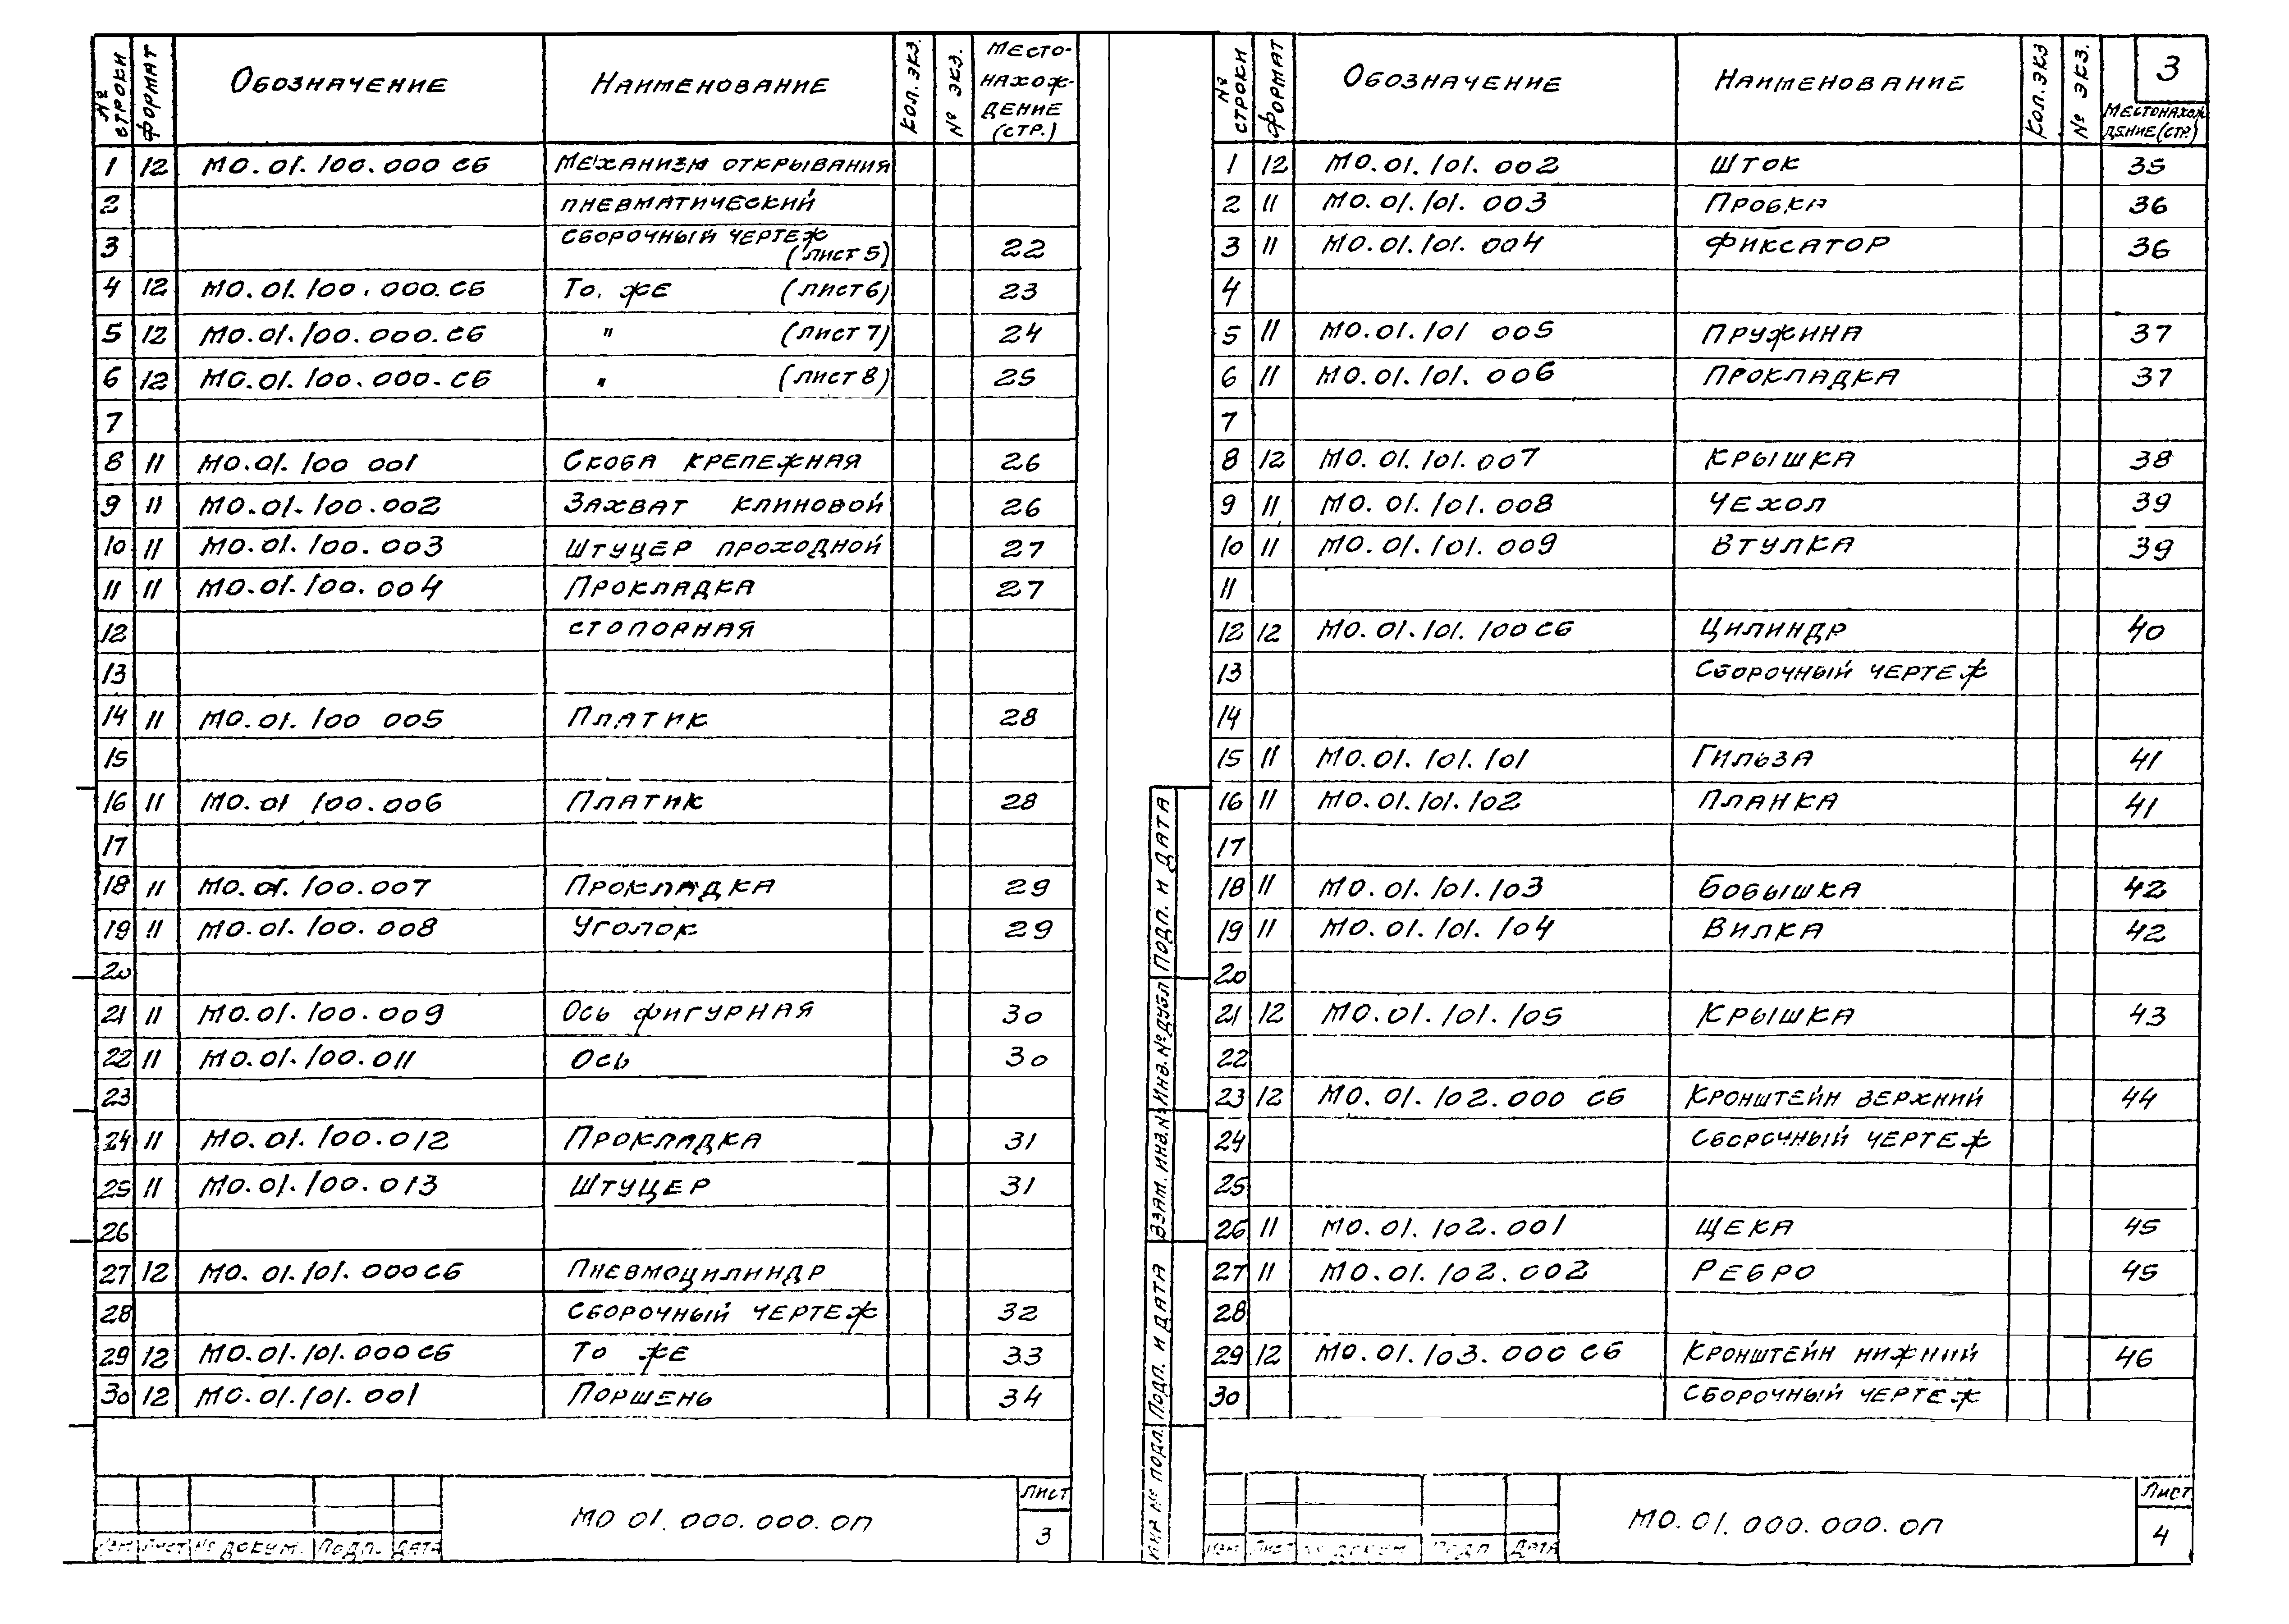 № строки Формат Обозначение Наименование Кол. экз. № экз. Место-нахож-дение (стр.)
1 12 МО.01.100.000 СБ Механизм открывания
2 пневматический
3 сборочный чертеж (лист 5) 22
4 12 МО.01.100.000.СБ То же (лист 6) 23
5 12 МО.01.100.000.СБ " (лист 7) 24
6 12 МО.01.100.000.СБ " (лист 8) 25
7
8 11 МО.01.100 001 Скоба крепежная 26
9 11 МО.01.100.002 Захват клиновой 26
10 11 МО.01.100.003 Штуцер проходной 27
11 11 МО.01.100.004 Прокладка 27
12 стопорная
13
14 11 МО.01.100 005 Платик 28
15
16 11 МО.01 100.006 Платик 28
17
18 11 МО.01.100.007 Прокладка 29
19 11 МО.01.100.008 Уголок 29
20
21 11 МО.01.100.009 Ось фигурная 30
22 11 МО.01.100.011 Ось 30
23
24 11 МО.01.100.012 Прокладка 31
25 11 МО.01.100.013 Штуцер 31
26
27 12 МО.01.101.000СБ Пневмоцилиндр
28 Сборочный чертеж 32
29 12 МО.01.101.000СБ То же 33
30 12 МО.01.101.001 Поршень 34
Изм Лист № докум. Подп. Дата
МО 01.000.000.ОП
Лист
3
3
№ строки Формат Обозначение Наименование Кол. экз № экз. Местонахождение (стр.)
1 12 МО.01.101.002 Шток 35
2 11 МО.01.101.003 Пробка 36
3 11 МО.01.101.004 Фиксатор 36
4
5 11 МО.01.101 005 Пружина 37
6 11 МО.01.101.006 Прокладка 37
7
8 12 МО.01.101.007 Крышка 38
9 11 МО.01.101.008 Чехол 39
10 11 МО.01.101.009 Втулка 39
11
12 12 МО.01.101.100СБ Цилиндр 40
13 Сборочный чертеж
14
15 11 МО.01.101.101 Гильза 41
16 11 МО.01.101.102 Планка 41
17
18 11 МО.01.101.103 Бобышка 42
19 11 МО.01.101.104 Вилка 42
20
21 12 МО.01.101.105 Крышка 43
22
23 12 МО.01.102.000 СБ Кронштейн верхний 44
24 Сборочный чертеж
25
26 11 МО.01.102.001 Щека 45
27 11 МО.01.102.002 Ребро 45
28
29 12 МО.01.103.000 СБ Кронштейн нижний 46
30 Сборочный чертеж
Подп. и дата
Инв. № дубл
Взам. инв. №
Подп. и дата
Инв № подл.
Изм Лист № докум Подп Дата
МО.01.000.000.ОП
Лист
4